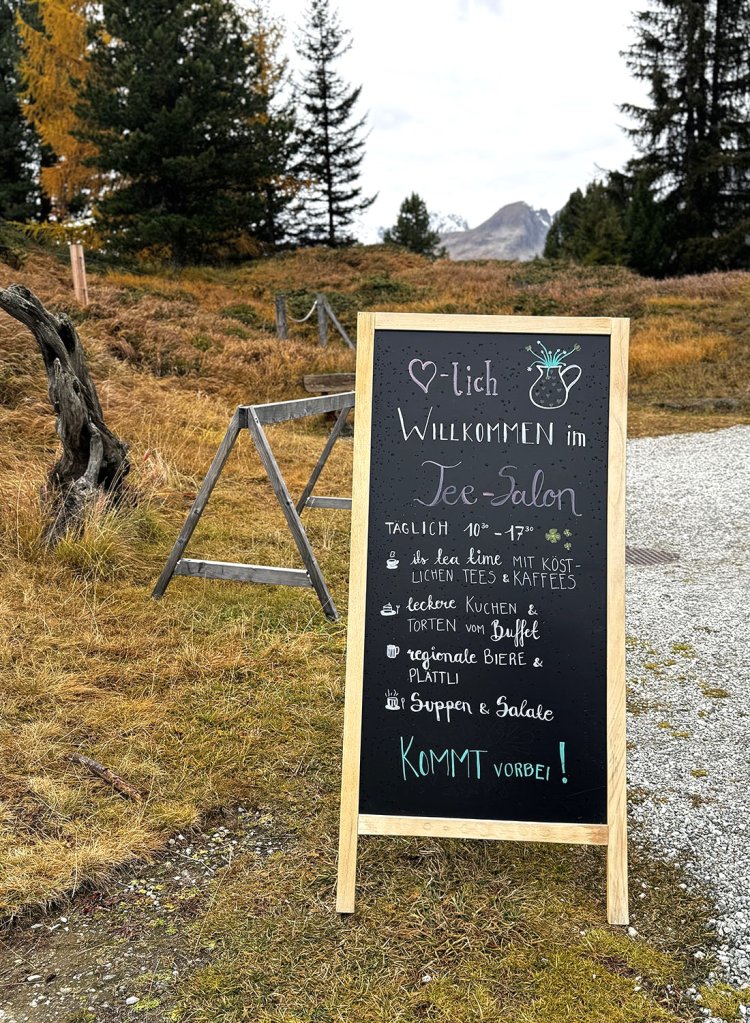 ♡-lich
WILLKOMMEN im
Tee-Salon
TÄGLICH 10³⁰ -17³⁰
its tea time MIT KÖST-
LICHEN TEES & KAFFEES
leckere KUCHEN &
TORTEN VOM Buffet
regionale BIERE &
PLÄTTLI
Suppen & Salate
KOMMT VORBEI!